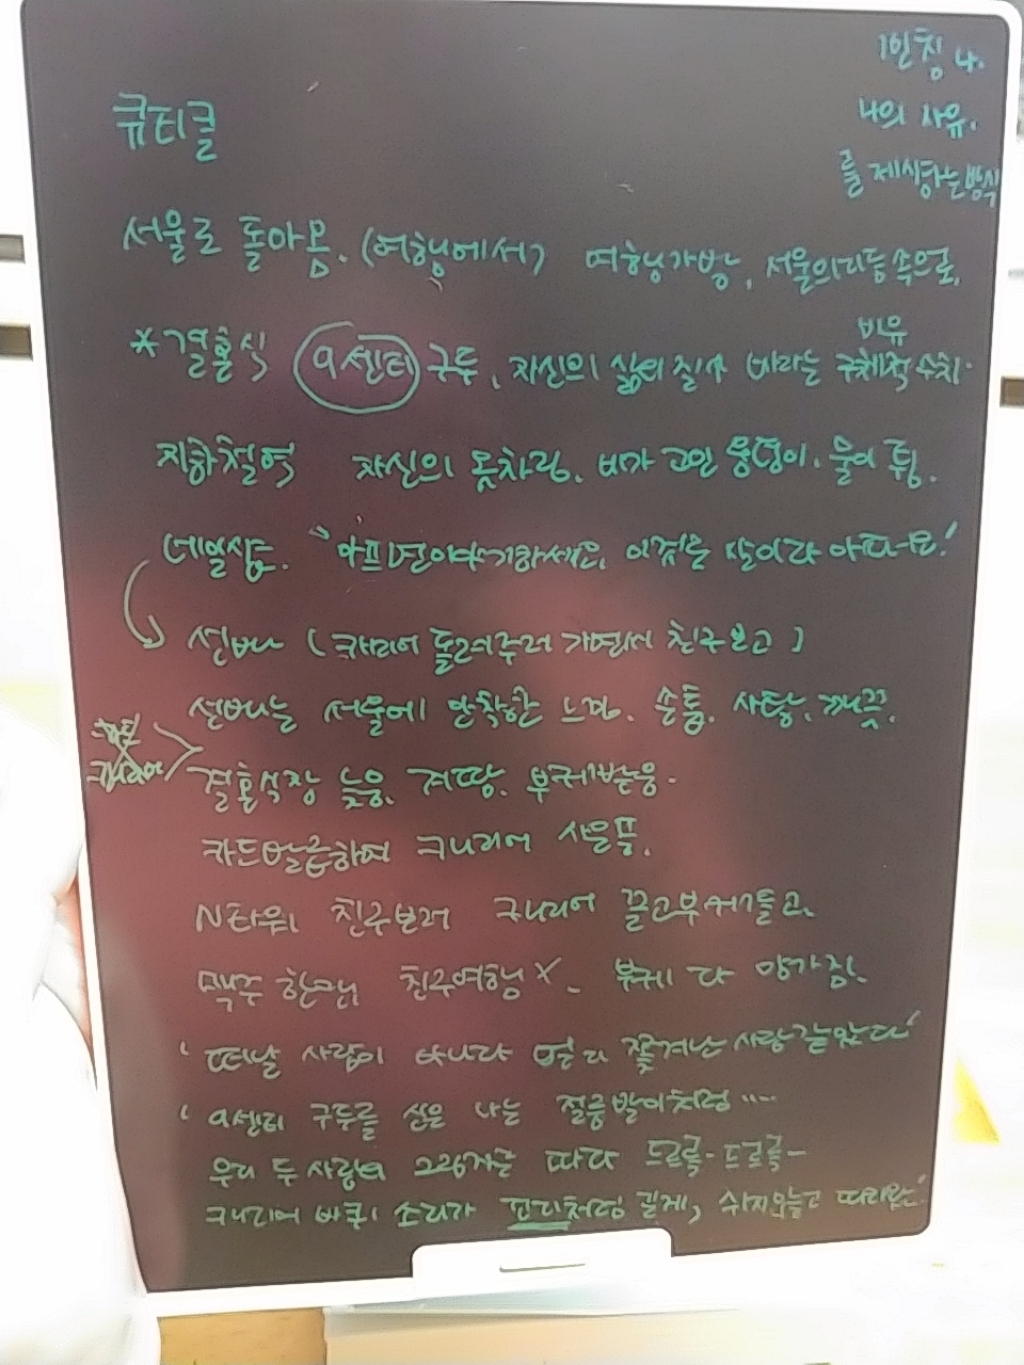 1인칭 나.
나의 사유.
를 제시하는 방식
큐티클
서울로 돌아옴. (여행에서) 여행가방, 서울의 리듬 속으로.
비유
*결혼식 9센티 구두, 자신의 삶의 질과 바라는 구체적 수치.
지하철역 자신의 옷차림. 비가 고인 웅덩이. 물이 튐.
네일샵. "아프면 이야기하세요. 이것은 살이라 아파요!
선배나 (캐리어 돌려주러 가면서 친구보고)
선배는 서울에 안착한 느낌. 손톱. 사탕. 깨끗.
캐리어
결혼식장 늦음. 겨땀. 부케받음.
카드발급하여 캐리어 사은품.
N타워 친구보러 캐리어 끌고 부케 들고.
맥주 한캔 친구여행 X. 부케 다 망가짐.
'떠날 사람이 아니라 멀리 쫓겨난 사람 같았다'
'9센티 구두를 신은 나는 절름발이처럼 ....
우리 두 사람의 그림자를 따라 드르륵- 드르륵-
캐리어 바퀴 소리가 꼬리처럼 길게, 쉬지 않고 따라왔다.'